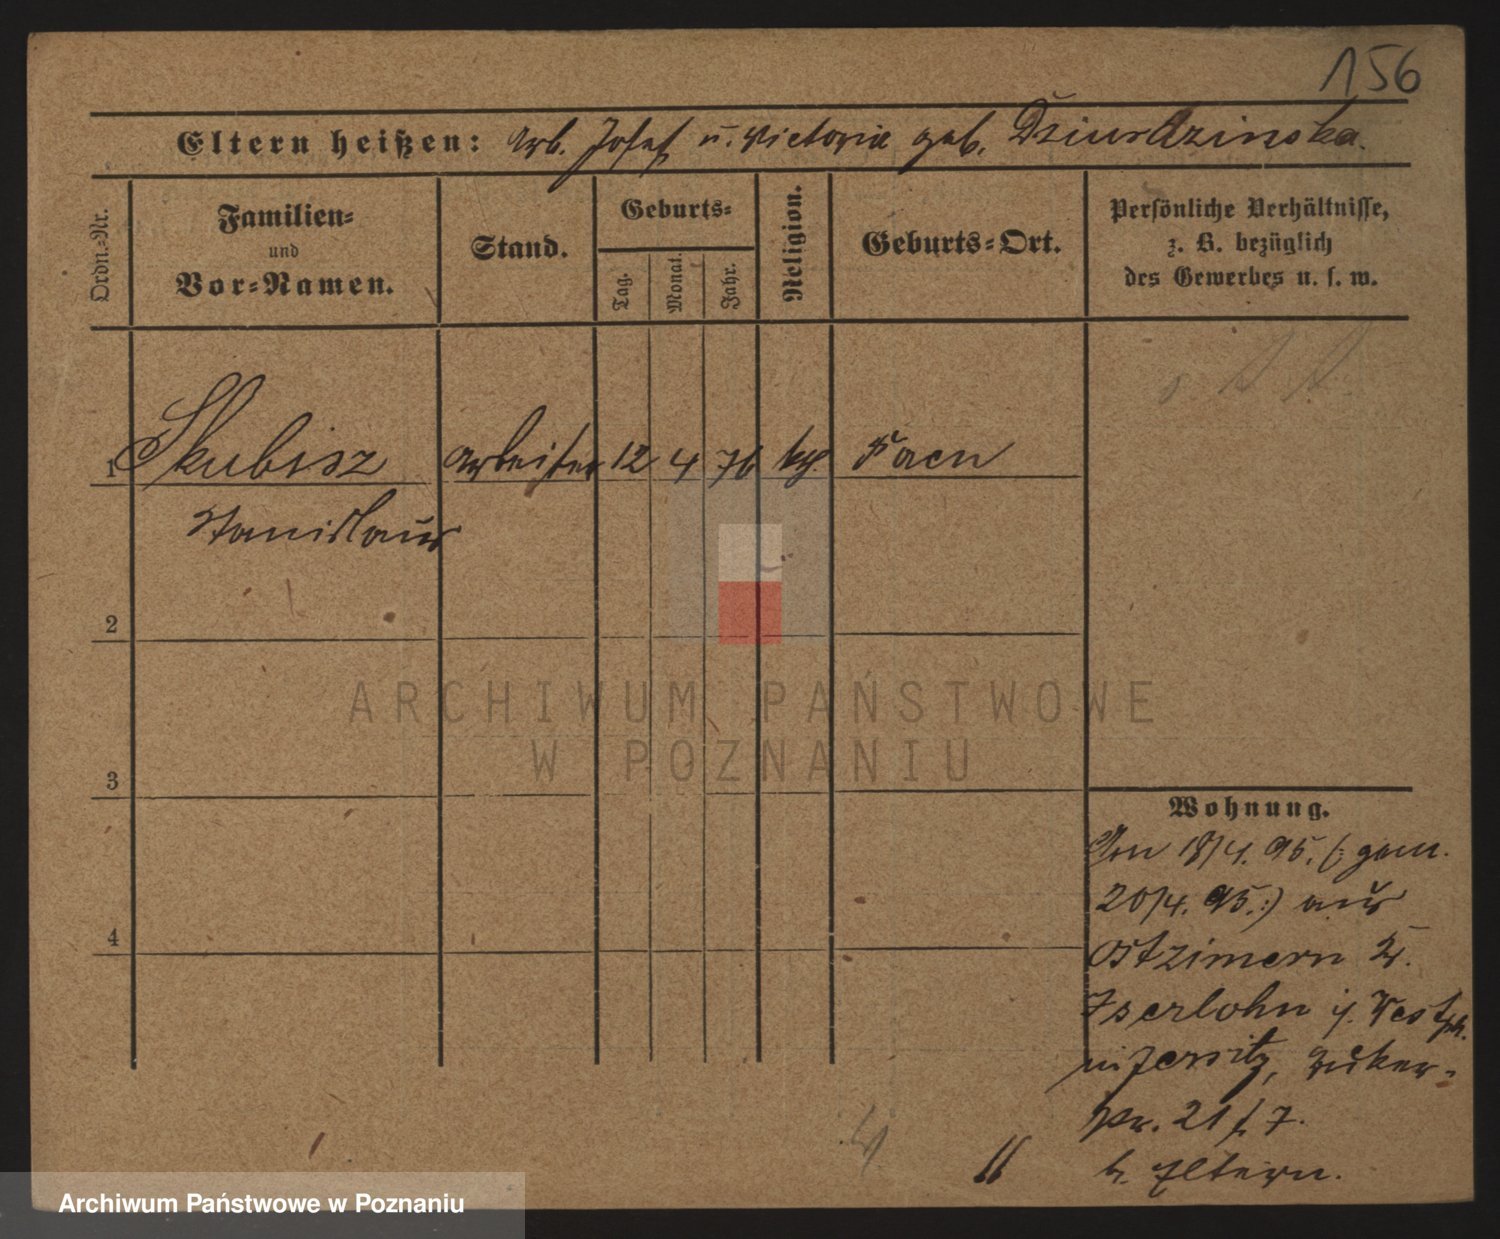 156
Eltern heißen: Arb. Josef u. Victoria geb. Dziurdzinska.
Ordn.-Nr.
Familien- und Vor-Namen.
Stand.
Geburts-
Tag.
Monat.
Jahr.
Religion.
Geburts-Ort.
Persönliche Verhältnisse,
z. B. bezüglich
des Gewerbes u. s. w.
1 Skubisz Arbeiter 12 4 76 kth.
Stanislaus
2
3
4
Wohnung.
Am 18/4. 95. (: gem.
20/4. 95. :) aus
Ostzimern Kr.
Iserlohn i. Westph.
in Jersitz,
21 7.
b. Eltern.
ARCHIWUM PAŃSTWOWE
W POZNANIU
Archiwum Państwowe w Poznaniu